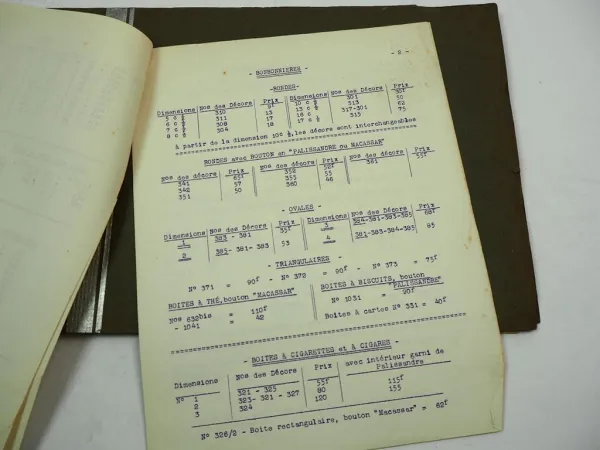 - 2 -
- BONBONNIERES -
-RONDES-
Dimensions Nos des Décors Prix Dimensions Nos des Décors Prix
5 c ½ 310 9f 10 c ½ 301 30f
6 c ½ 311 13 13 c ½ 313 50
7 c ½ 308 17 16 c ½ 317-301 62
9 c ½ 304 18 17 c ½ 315 75
à partir de la dimension 10c ½, les décors sont interchangeables
RONDES avec BOUTON en "PALISSANDRE ou MACASSAR"
Nos des décors Prix Nos des décors Prix Nos des décors Prix
341 65f 352 52f 361 55f
342 57 353 55
351 50 360 46
- OVALES -
Dimensions Nos des Décors Prix Dimensions Nos des Décors Prix
1 383 - 381 35f 3 384-381-383-385 68f
2 385- 381- 383 53 4 381-383-384-385 85
- TRIANGULAIRES -
N° 371 = 90f - N° 372 = 90f - N° 373 = 75f
BOITES à THÉ, bouton "MACASSAR" BOITES à BISCUITS, bouton "PALISSANDRE"
Nos 632bis = 110f N° 1031 = 90f
- 1041 = 42 Boîtes à cartes N° 331 = 40f
- BOITES à CIGARETTES et à CIGARES -
Dimensions Nos des Décors Prix avec intérieur garni de Palissandre
N° 1 321 - 325 55f 115f
2 323- 321 - 327 80 155
3 324 120
N° 326/2 - Boite rectangulaire, bouton "Macassar" = 62f